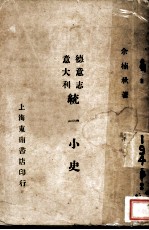 余楠秋著
德意志
意大利
統一小史
上海東南書店印行